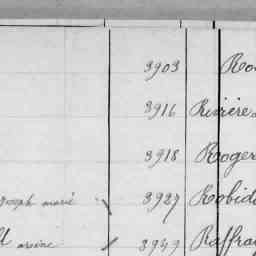 3903 Ro
3916 Rivière
3918 Roger
Joseph marie 3927 Robid
arsène 3949 Raffray